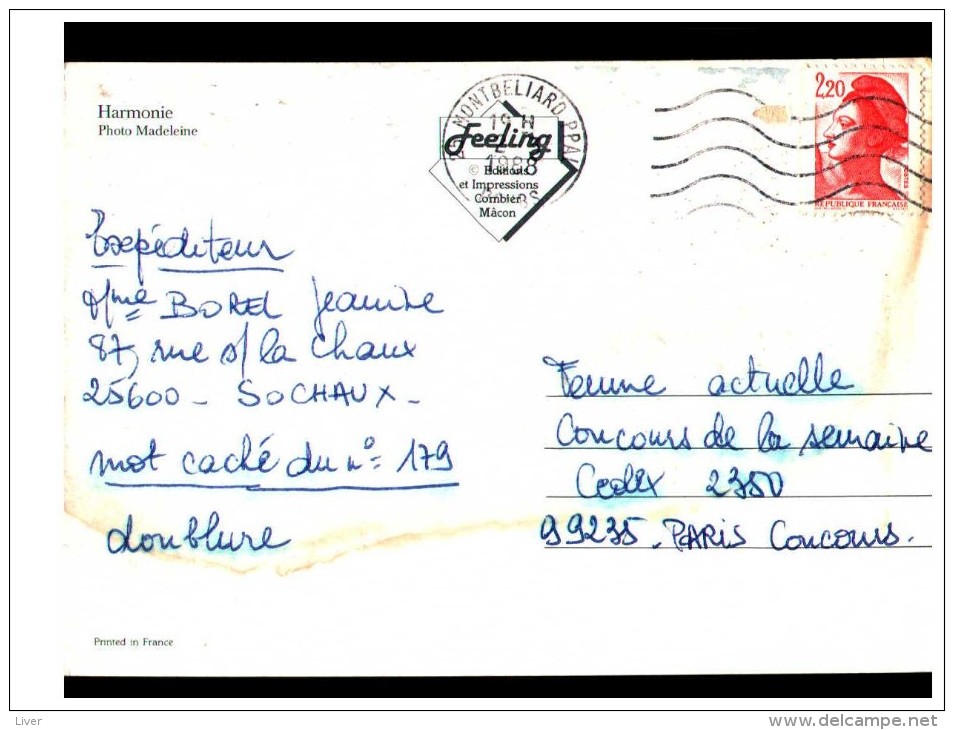 Harmonie
Photo Madeleine
MONTBELIARD PPAL
19 H
1988
DOUBS
Feeling
© Editions
et Impressions
Combier
Mâcon
2,20
POSTES
REPUBLIQUE FRANÇAISE
Expéditeur
Mme BOREL Jeanine
87, rue s/ la Chaux
25600 - SOCHAUX -
mot caché du n° = 179
doublure
Femme actuelle
Concours de la semaine
Cedex 2350
99235 - PARIS Concours.
Printed in France
Liver
www.delcampe.net